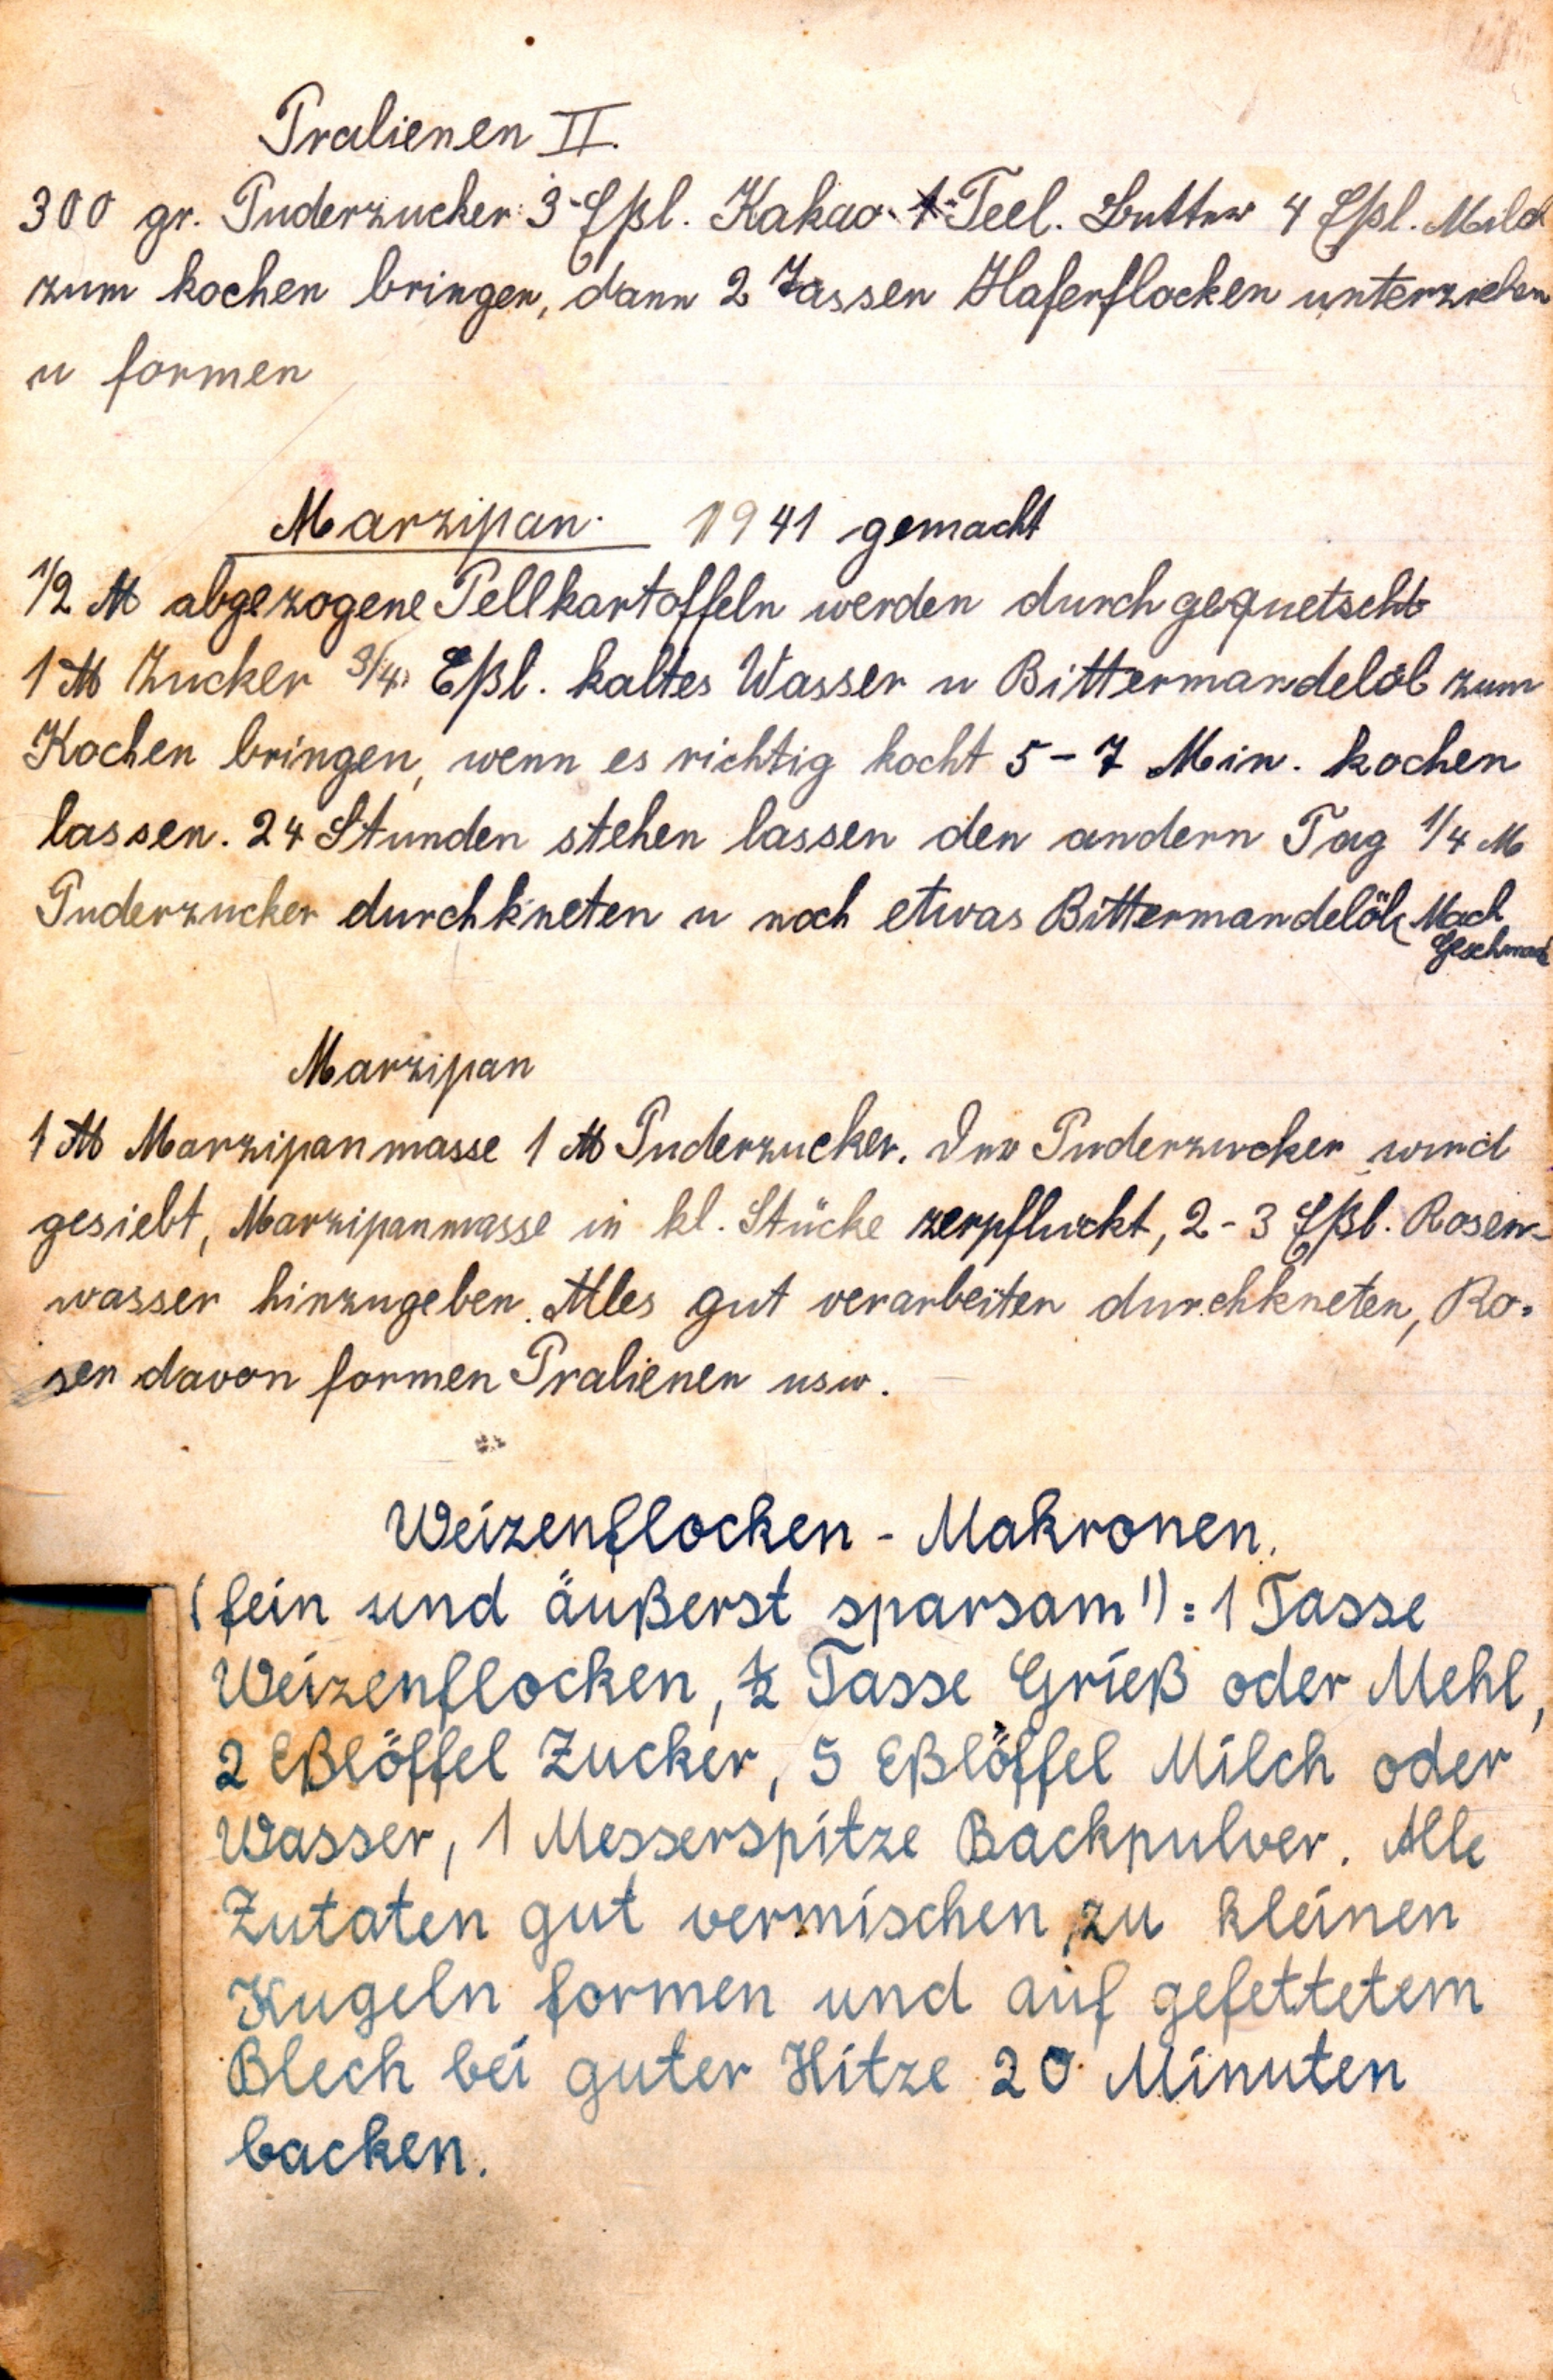 Pralienen II.
300 gr. Puderzucker 3 Eßl. Kakao 1 Teel. Butter 4 Eßl. Milch
zum kochen bringen, dann 2 Tassen Haferflocken unterziehen
u formen
Marzipan. 1941 gemacht
1/2 ℔ abgezogene Pellkartoffeln werden durchgequetscht
1 ℔ Zucker 3/4 Eßl. kaltes Wasser u Bittermandelöl zum
Kochen bringen, wenn es richtig kocht 5-7 Min. kochen
lassen. 24 Stunden stehen lassen den andern Tag 1/4 ℔
Puderzucker durchkneten u noch etwas Bittermandelöl (Nach
Geschmack
Marzipan
1 ℔ Marzipanmasse 1 ℔ Puderzucker. Der Puderzucker wird
gesiebt, Marzipanmasse in kl. Stücke zerpfluckt, 2-3 Eßl. Rosen-
wasser hinzugeben. Alles gut verarbeiten durchkneten, Ro-
sen davon formen Pralienen usw.
Weizenflocken - Makronen.
(fein und äußerst sparsam!): 1 Tasse
Weizenflocken, ½ Tasse Grieß oder Mehl,
2 Eßlöffel Zucker, 5 Eßlöffel Milch oder
Wasser, 1 Messerspitze Backpulver. Alle
Zutaten gut vermischen, zu kleinen
Kugeln formen und auf gefettetem
Blech bei guter Hitze 20 Minuten
backen.